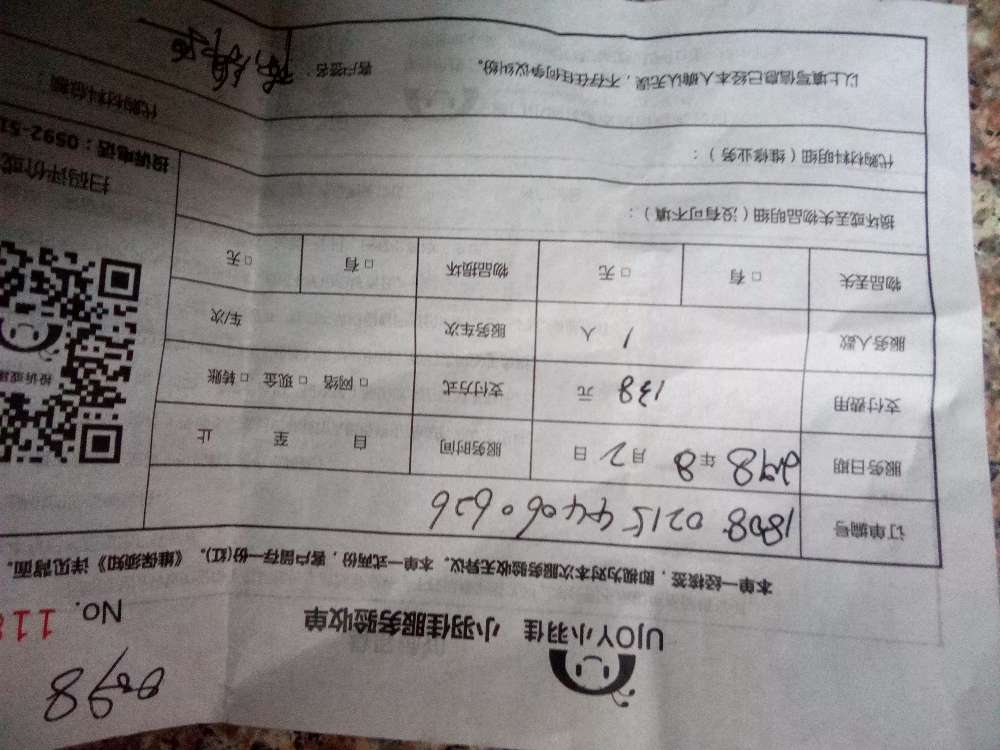 UJOY小羽佳 小羽佳服务验收单
No. 11
本单一经核签，即视为对本次服务验收无异议。本单一式两份，客户留存一份(红)。《维保须知》详见背面。
订单编号 1808 0215 4406 0626
服务日期 2018年 8月 2日 服务时间 自 至 止
支付费用 138 元 支付方式 □ 网络 □ 现金 □ 转账
服务人数 1 人 服务车次 车/次
物品丢失 □ 有 □ 无 物品损坏 □ 有 □ 无
损坏或丢失物品明细（没有可不填）：
代购材料明细（维修业务）：
以上填写信息已经本人确认无误，不存在任何争议纠纷。 客户签名：
投诉或
扫码评价或
投诉电话：0592-51
代购材料总额：